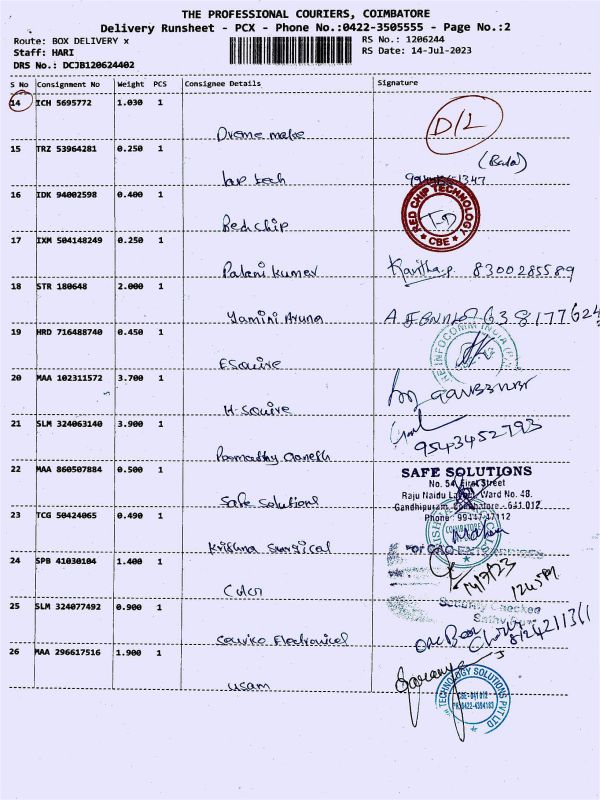 THE PROFESSIONAL COURIERS, COIMBATORE
Delivery Runsheet - PCX - Phone No.:0422-3505555 - Page No.:2
Route: BOX DELIVERY x
RS No.: 1206244
Staff: HARI
RS Date: 14-Jul-2023
DRS No.: DCJB120624402
S No Consignment No Weight PCS Consignee Details Signature
14 ICH 5695772 1.030 1
D/L
15 TRZ 53964281 0.250 1
tech
16 IDK 94002598 0.400 1
RED CHIP TECHNOLOGY
CBE
Redchip
17 IXM 504148249 0.250 1
Palani kumar
Kavitha.p. 8300285589
18 STR 180648 2.000 1
Yamini Aruna
19 HRD 716488740 0.450 1
ESquire
20 MAA 102311572 3.700 1
H-Squire
21 SLM 324063140 3.900 1
9543452793
22 MAA 860507884 0.500 1
SAFE SOLUTIONS
No. 54, First Street
Raju Naidu Ward No. 48.
Gandhipuram, Coimbatore - 641 012
Safe Solutions
23 TCG 50424065 0.490 1
COIMBATORE
Krishna Surgical
24 SPB 41030104 1.400 1
14/7/23
Color
25 SLM 324077492 0.900 1
Security Checked
Electronical
26 MAA 296617516 1.900 1
Saranya
usam
TECHNOLOGY SOLUTIONS PVT LTD
CBE-641 012